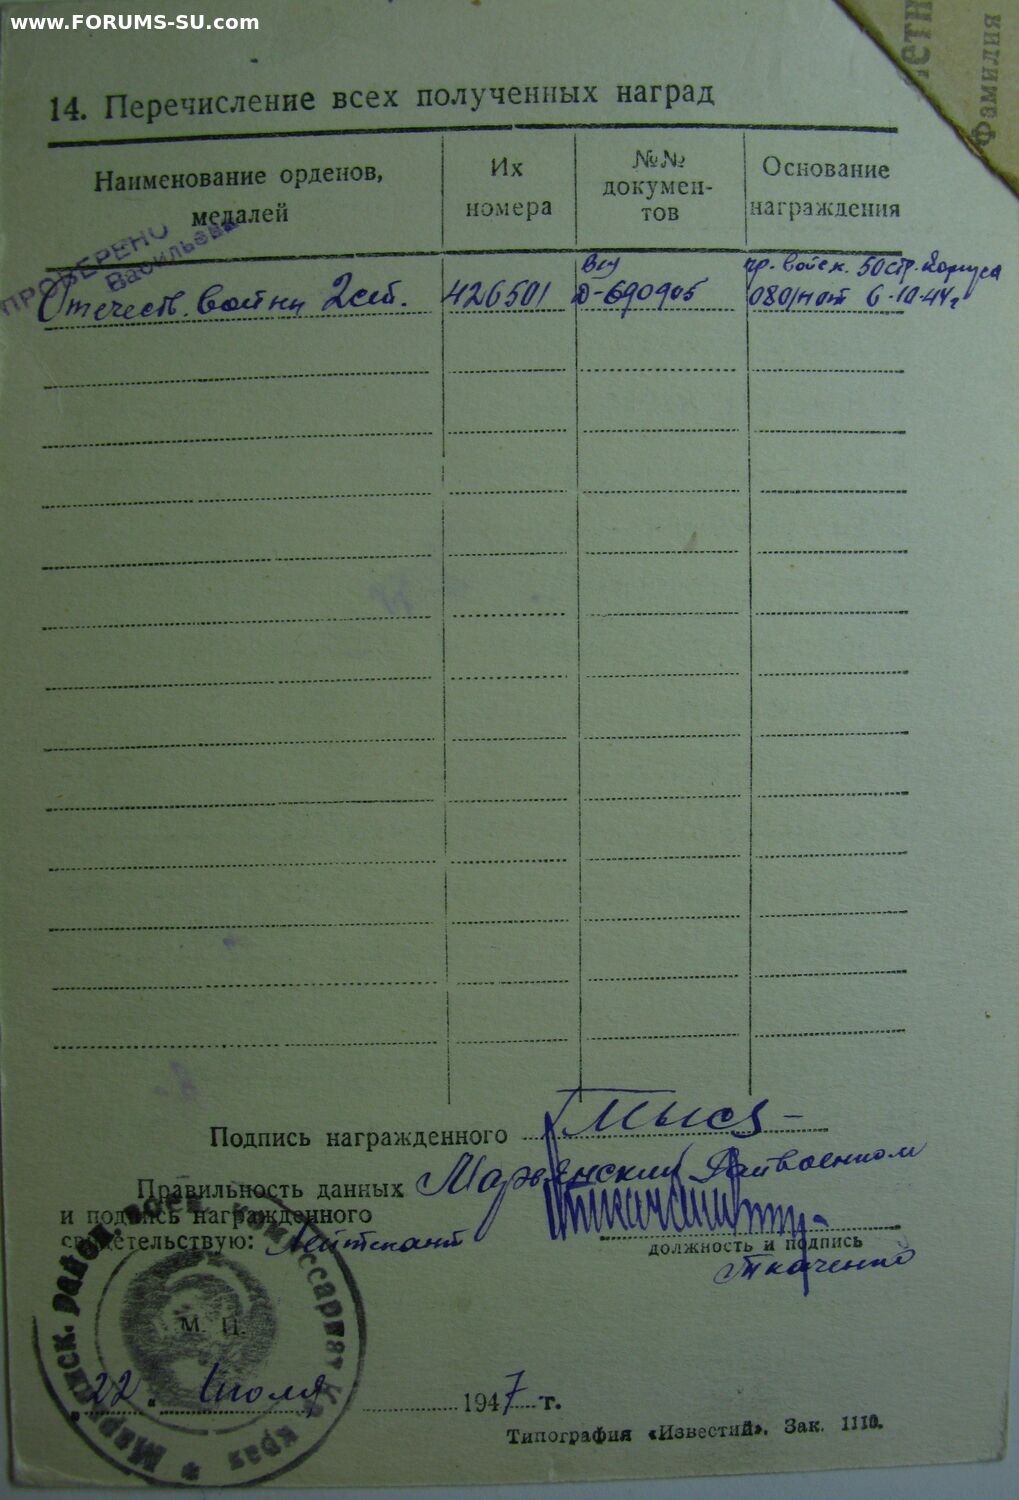 www.FORUMS-SU.com
етн
Фамилия
14. Перечисление всех полученных наград
Наименование орденов, медалей
Их номера
№№ докумен-тов
Основание награждения
ПРОВЕРЕНО
Васильева
Отечеств. войны 2 ст.
426501
Д-690905
пр. войск. 50 стр. Корпуса
080/н от 6-10-44 г
Подпись награжденного Мысь
Правильность данных Марьянский Райвоенком
и подпись награжденного
свидетельствую: Лейтенант
должность и подпись
Ткаченко
Марьянск. район. воен. комиссариат Кр. края
М. П.
„22“ Июля 1947 г.
Типография «Известий». Зак. 1110.